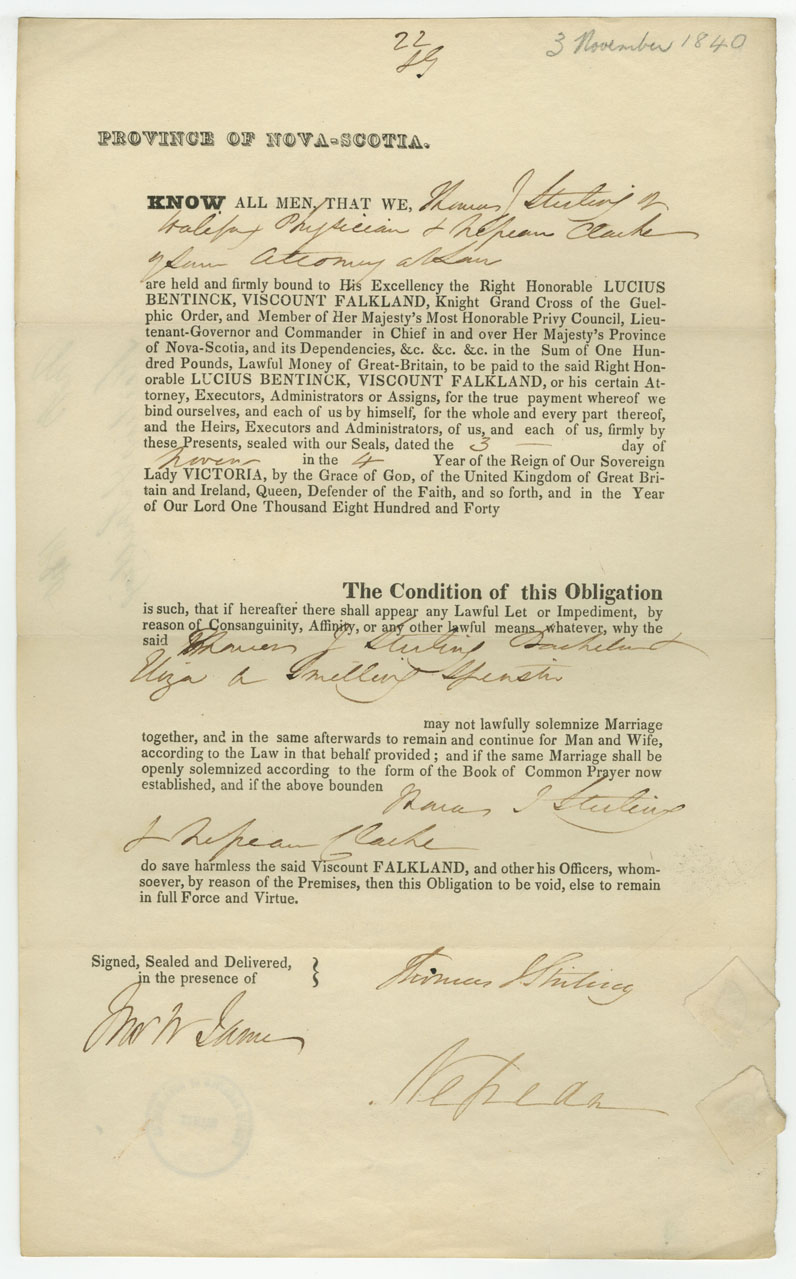 22
3 November 1840
PROVINCE OF NOVA-SCOTIA.
KNOW ALL MEN, THAT WE, Thomas J Stirling of
Halifax Physician & Nepean Clarke
of same Attorney at Law
are held and firmly bound to His Excellency the Right Honorable LUCIUS
BENTINCK, VISCOUNT FALKLAND, Knight Grand Cross of the Guel-
phic Order, and Member of Her Majesty's Most Honorable Privy Council, Lieu-
tenant-Governor and Commander in Chief in and over Her Majesty's Province
of Nova-Scotia, and its Dependencies, &c. &c. &c. in the Sum of One Hun-
dred Pounds, Lawful Money of Great-Britain, to be paid to the said Right Hon-
orable LUCIUS BENTINCK, VISCOUNT FALKLAND, or his certain At-
torney, Executors, Administrators or Assigns, for the true payment whereof we
bind ourselves, and each of us by himself, for the whole and every part thereof,
and the Heirs, Executors and Administrators, of us, and each of us, firmly by
these Presents, sealed with our Seals, dated the 3 day of
Novem in the 4 Year of the Reign of Our Sovereign
Lady VICTORIA, by the Grace of GOD, of the United Kingdom of Great Bri-
tain and Ireland, Queen, Defender of the Faith, and so forth, and in the Year
of Our Lord One Thousand Eight Hundred and Forty
The Condition of this Obligation
is such, that if hereafter there shall appear any Lawful Let or Impediment, by
reason of Consanguinity, Affinity, or any other lawful means whatever, why the
said Thomas J Stirling Bachelor &
Eliza A Snelling Spinster
may not lawfully solemnize Marriage
together, and in the same afterwards to remain and continue for Man and Wife,
according to the Law in that behalf provided; and if the same Marriage shall be
openly solemnized according to the form of the Book of Common Prayer now
established, and if the above bounden
Thomas J Stirling
& Nepean Clarke
do save harmless the said Viscount FALKLAND, and other his Officers, whom-
soever, by reason of the Premises, then this Obligation to be void, else to remain
in full Force and Virtue.
Signed, Sealed and Delivered,
in the presence of
Thomas J Stirling
W James
Nepean